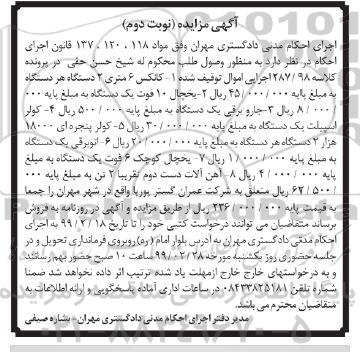 آگهی مزایده (نوبت دوم)
اجرای احکام مدنی دادگستری مهران وفق مواد ۱۱۸ ، ۱۲۰ ، ۱۳۷ قانون اجرای
احکام در نظر دارد به منظور وصول طلب محکوم له شیخ حسن حقی در پرونده
کلاسه ۲۸۷/۹۸ اجرایی اموال توقیف شده ۱- کانکس ۶ متری ۲ دستگاه هر دستگاه
به مبلغ پایه ۰۰۰/۰۰۰/۴۵ ریال ۲-یخچال ۱۰ فوت یک دستگاه به مبلغ پایه ۰۰۰
/۰۰۰/۸ ریال ۳-جارو برقی یک دستگاه به مبلغ پایه ۰۰۰/۵۰۰ ریال ۴- کولر
اسپیلت یک دستگاه به مبلغ پایه ۰۰۰/۰۰۰/۳۰ ریال ۵- کولر پنجره ای ۱۸۰۰۰
هزار ۲ دستگاه هر دستگاه به مبلغ پایه ۰۰۰/۰۰۰/۲۰ ریال ۶-اتوبرقی یک دستگاه
به مبلغ پایه ۰۰۰/۰۰۰/۱ ریال ۷- یخچال کوچک ۶ فوت یک دستگاه به مبلغ
پایه ۰۰۰/۰۰۰/۴ ریال ۸- آهن آلات دست دوم تقریبا ۲ تن به مبلغ پایه ۰۰۰
/۵۰۰/۶۲ ریال متعلق به شرکت عمران گستر پوریا واقع در شهر مهران را جمعا
به قیمت پایه ۰۰۰/۰۰۰/۲۳۶ ریال از طریق مزایده و آگهی در روزنامه به فروش
برساند متقاضیان می توانند درخواست کتبی خود را تا تاریخ ۹۹/۲/۱۸ به اجرای
احکام مدنی دادگستری مهران به آدرس بلوار امام (ره) روبروی فرمانداری تحویل و در
جلسه حضوری روز یکشنبه مورخه ۹۹/۰۲/۲۸ ساعت ۱۰ صبح حضور بهم رسانند
و به درخواستهای خارج خارج ازمهلت یاد شده ترتیب اثر داده نخواهد شد ضمنا
شماره تلفن ۰۸۴۳۳۸۲۵۱۸۱ در ساعات اداری آماده پاسخگویی و ارائه اطلاعات به
متقاضیان محترم می باشد.
مدیر دفتر اجرای احکام مدنی دادگستری مهران- بشاره صیفی